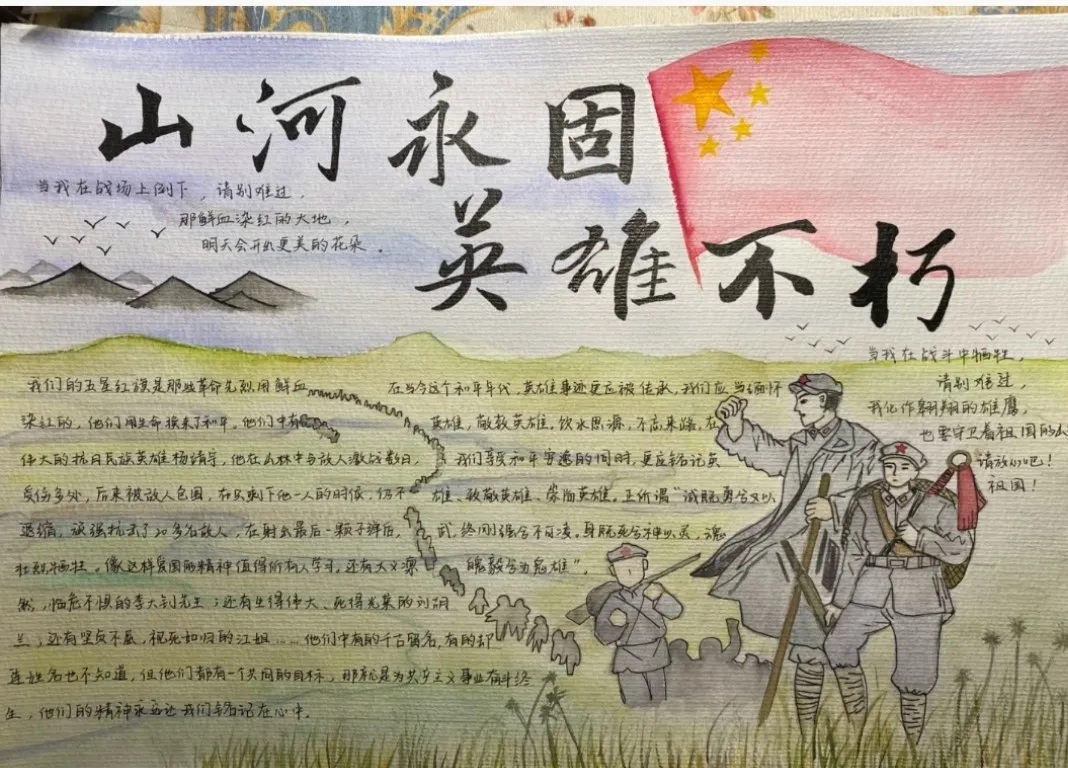 山河永固
英雄不朽
当我在战场上倒下，请别难过，
那鲜血染红的大地，
明天会开出更美的花朵。
我们的五星红旗是那些革命先烈用鲜血
染红的，他们用生命换来了和平。他们中有
伟大的抗日民族英雄杨靖宇，他在山林中与敌人激战数日，
受伤多处，后来被敌人包围，在只剩下他一人的时候，仍不
退缩，顽强抗击了20多名敌人，在射出最后一颗子弹后，
壮烈牺牲。像这样爱国的精神值得所有人学习，还有大义凛
然，临危不惧的李大钊先生；还有生得伟大、死得光荣的刘胡
兰；还有坚贞不屈，视死如归的江姐……他们中有的千古留名，有的却
连姓名也不知道，但他们都有一个共同的目标，那就是为共产主义事业奋斗终
生，他们的精神永远让我们铭记在心中。
在当今这个和平年代，英雄事迹更应被传承，我们应当缅怀
英雄，敬教英雄。饮水思源，不忘来路，在
我们享受和平安逸的同时，更应铭记英
雄、致敬英雄、崇尚英雄。正所谓“诚既勇兮又以
武，终刚强兮不可凌。身既死兮神以灵，魂
魄毅兮为鬼雄”。
当我在战斗中牺牲，
请别难过，
我化作翱翔的雄鹰，
也要守卫着祖国的山
请放心吧！
祖国！